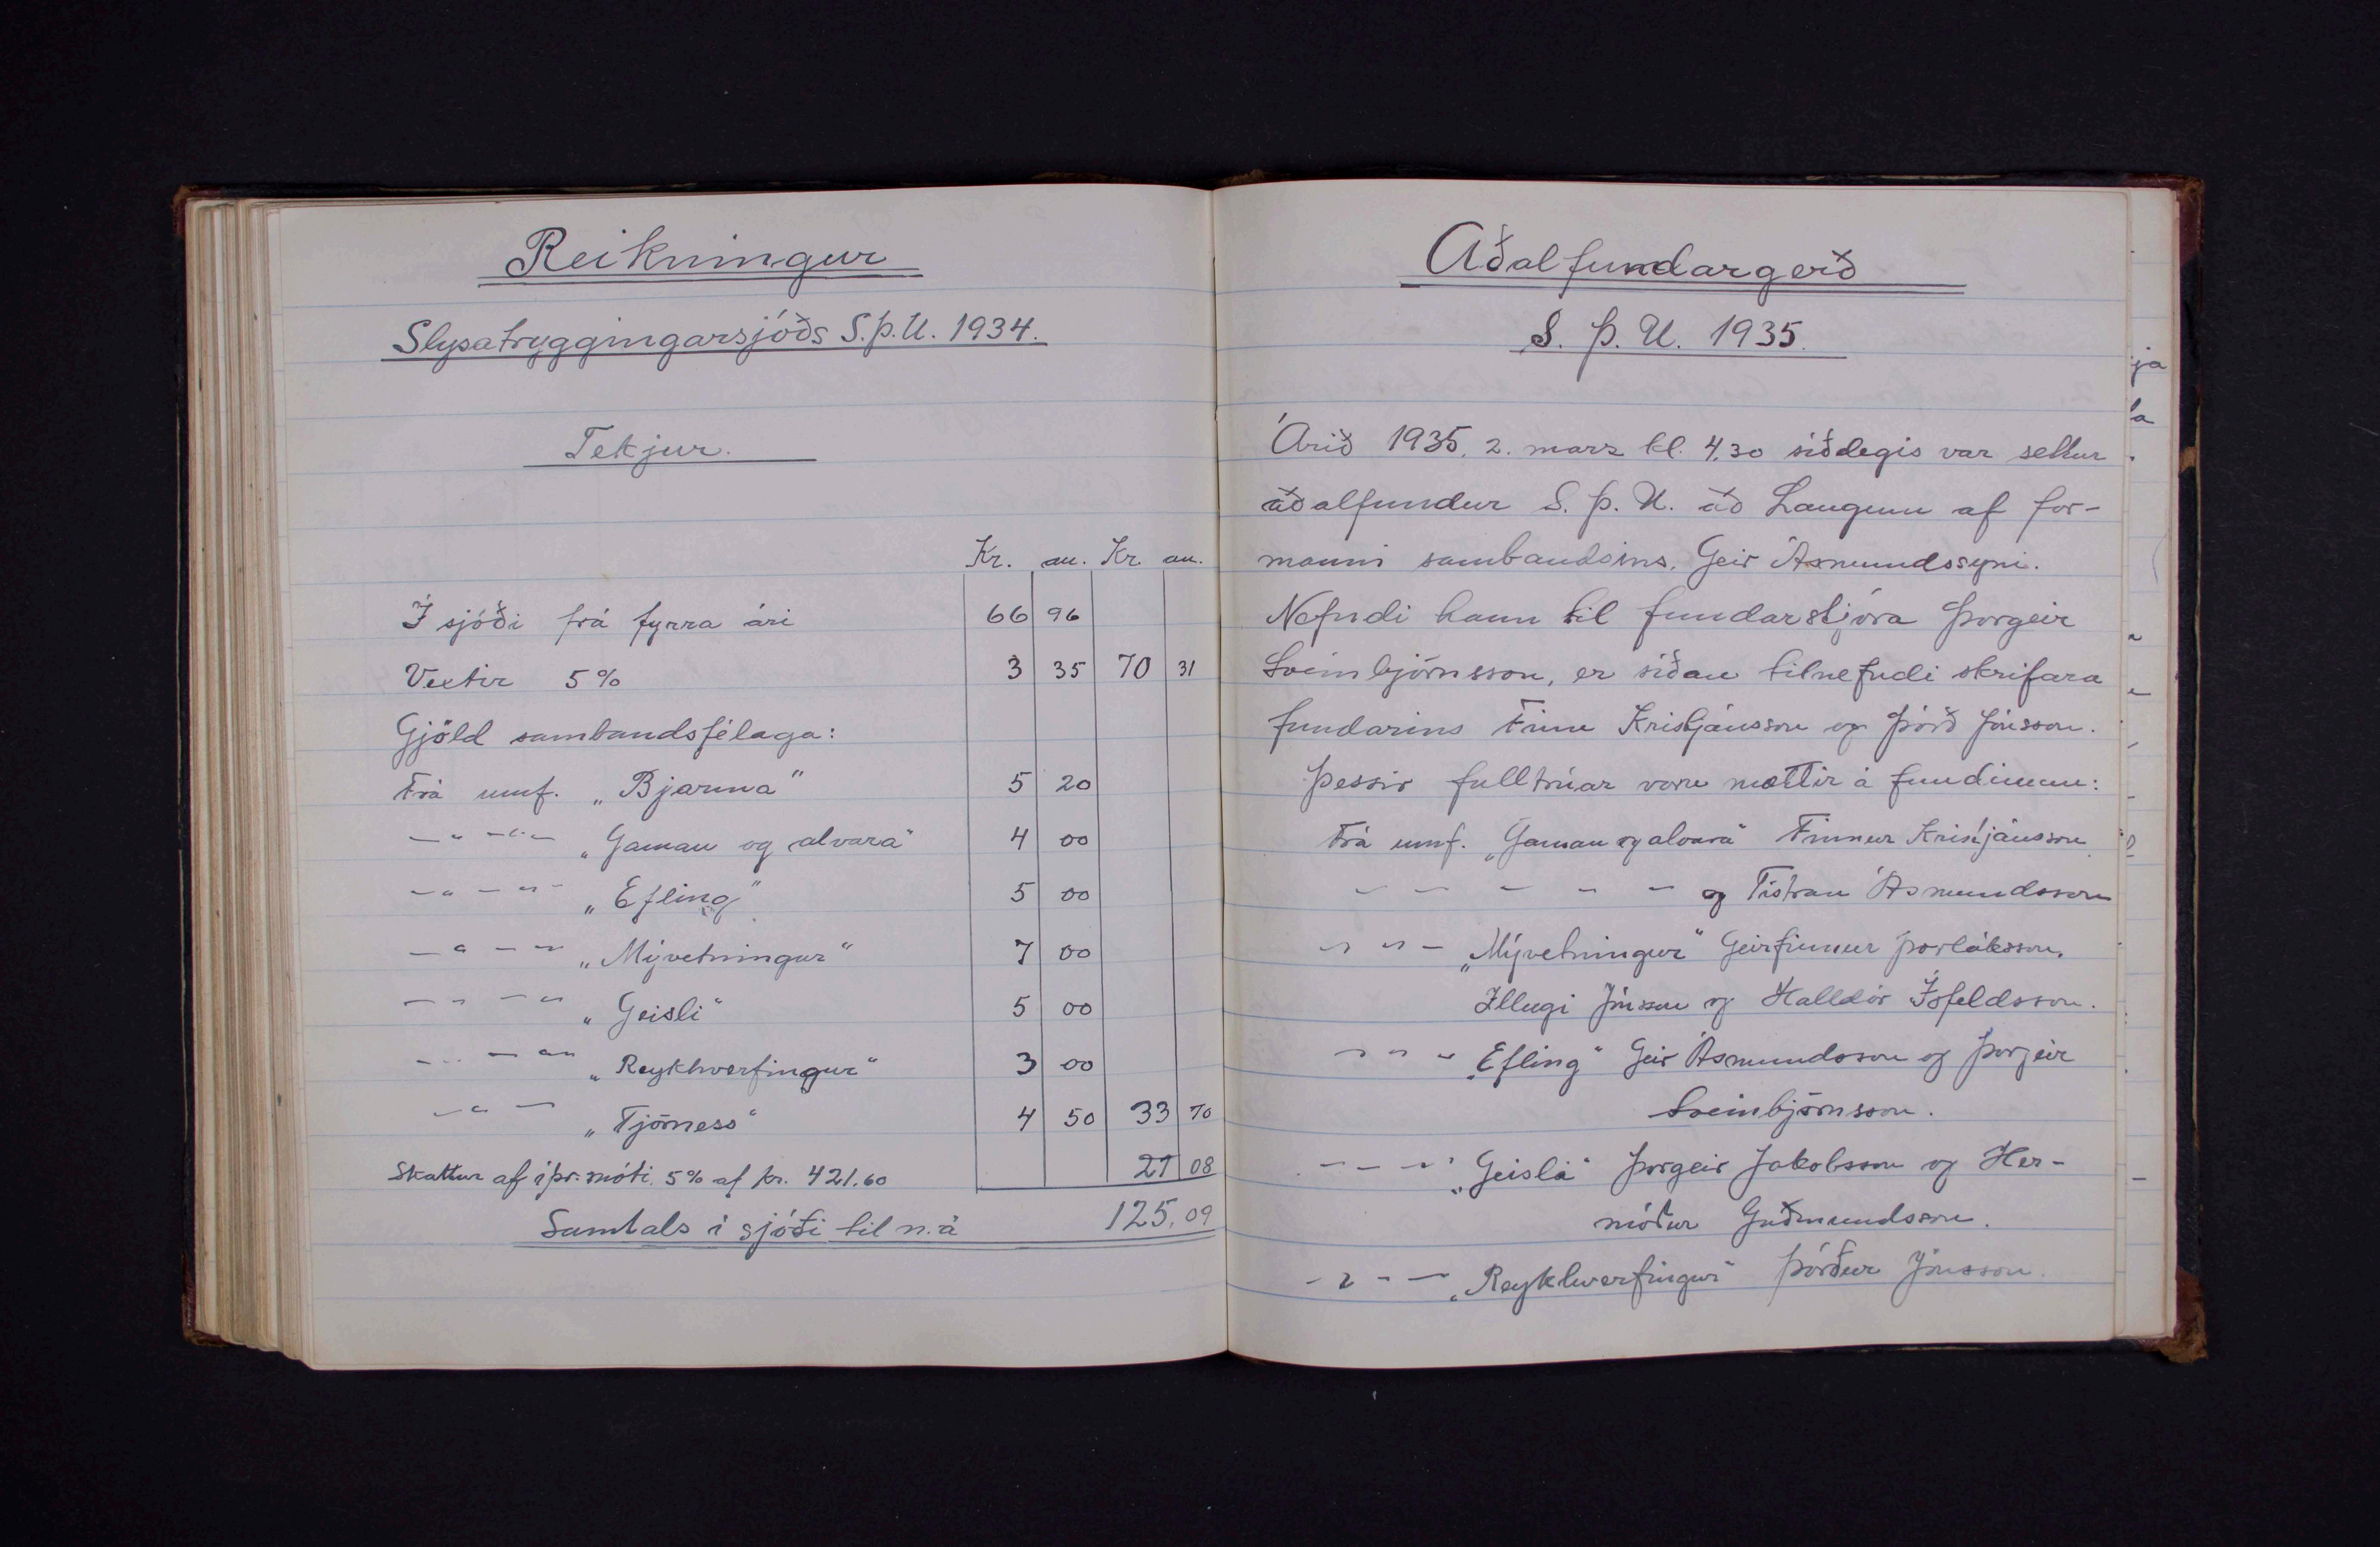 Reikningur
Slysatryggingarsjóðs S.Þ.U. 1934.
Tekjur.
Kr. au. Kr. au.
Í sjóði frá fyrra ári 66 96
Vextir 5% 3 35 70 31
Gjöld sambandsfélaga:
Frá umf. „Bjarma“ 5 20
— „ — „ — „Gaman og alvara“ 4 00
— „ — „ — „Efling“ 5 00
— „ — „ — „Mývetningur“ 7 00
— „ — „ — „Geisli“ 5 00
— „ — „ — „Reykhverfingur“ 3 00
— „ — „Tjörness“ 4 50 33 70
Skattur af íþr. móti. 5% af kr. 421.60 21 08
Samtals í sjóði til n.á 125,09
Aðalfundargerð
S. Þ. U. 1935.
Árið 1935, 2. marz kl. 4,30 síðdegis var settur
aðalfundur S. Þ. U. að Laugum af for-
manni sambandsins, Geir Ásmundssyni.
Nefndi hann til fundarstjóra Þorgeir
Sveinbjörnsson, er síðan tilnefndi skrifara
fundarins Finn Kristjánsson og Þórð Jónsson.
Þessir fulltrúar voru mættir á fundinum:
Frá umf. „Gaman og alvara“ Finnur Kristjánsson
— — — — — og Tistran Ásmundsson
— „ — „Mývetningur“ Geirfinnur Þorláksson,
Illugi Jónsson og Halldór Ísfeldsson.
— „ — „Efling“ Geir Ásmundsson og Þorgeir
Sveinbjörnsson.
— — — „Geisla“ Þorgeir Jakobsson og Her-
móður Guðmundsson.
— „ — — „Reykhverfingur“ Þórður Jónsson.